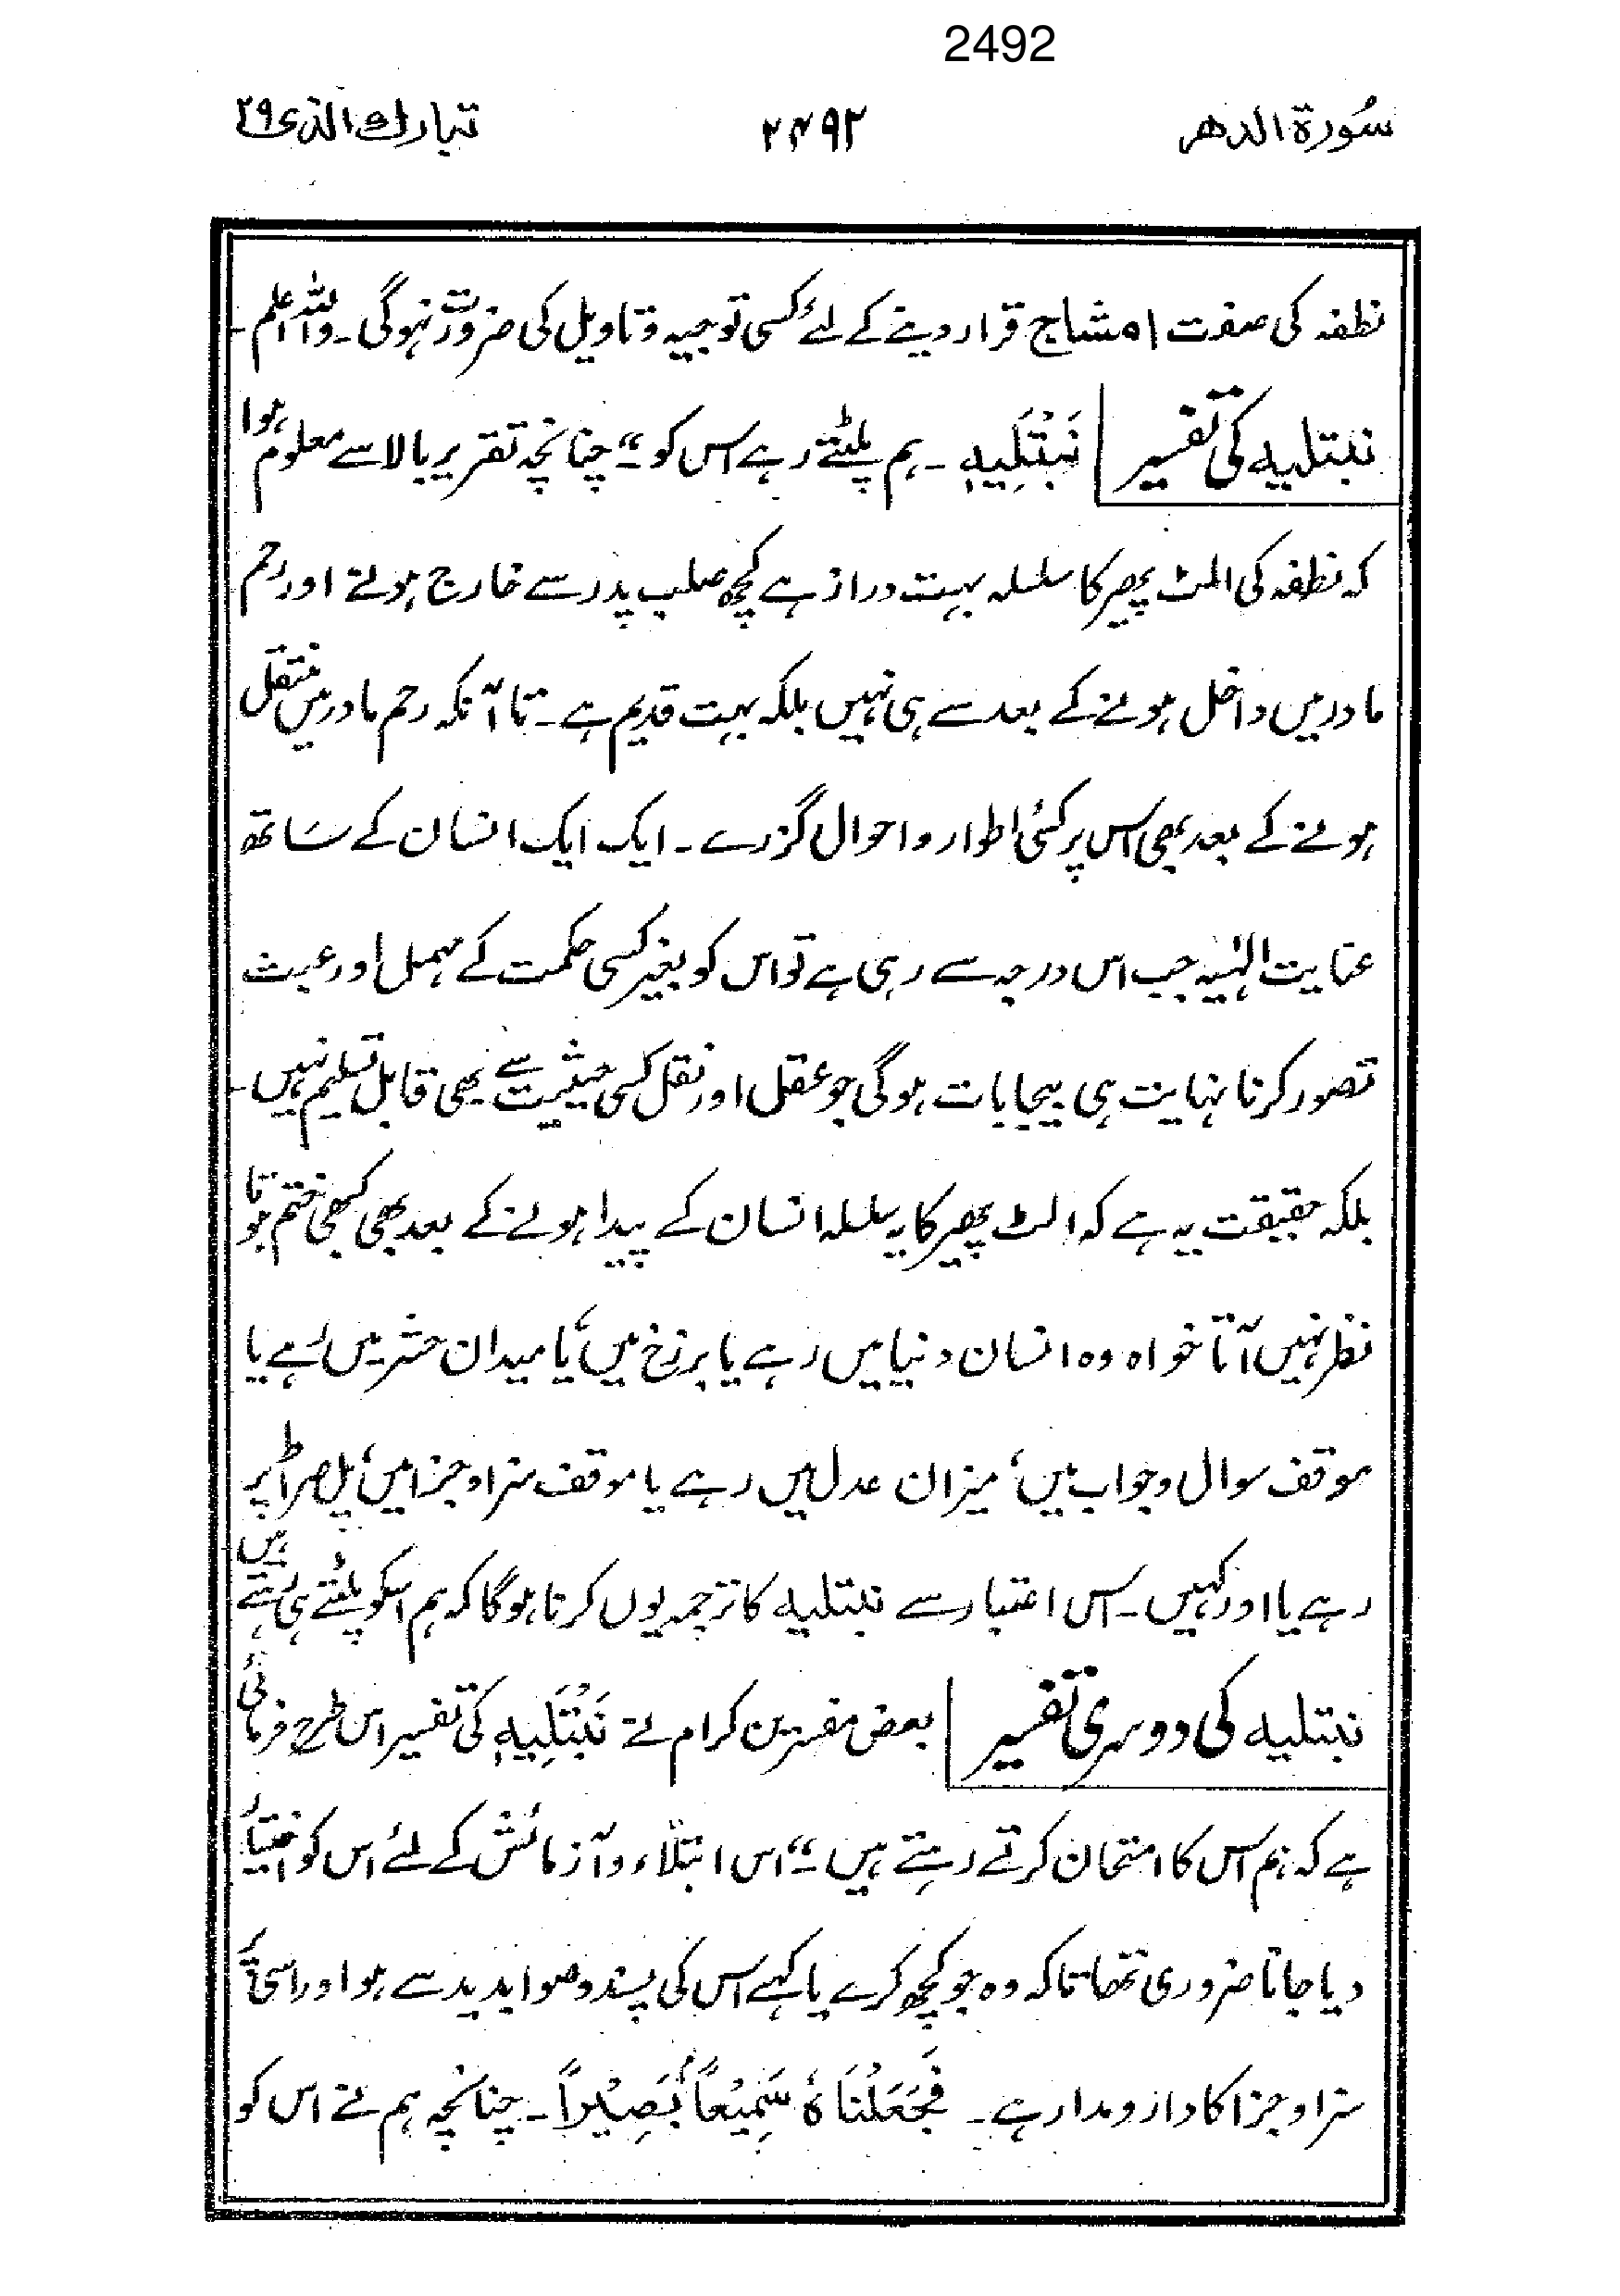 2492
سُورة الدهر ۲۴۹۲ تبارك الذی ۲۹
نطفہ کی صفت امشاج قرار دینے کے لئے کسی توجیہ و تاویل کی ضرورت نہوگی۔ واللہ اعلم۔
نبتلیه کی تفسیر نَبْتَلِیهِ۔ ہم پلٹتے رہے اس کو"۔ چنانچہ تقریر بالا سے معلوم ہوا
کہ نطفہ کی الٹ پھیر کا سلسلہ بہت دراز ہے کچھ صلب پدر سے خارج ہونے اور رحم
مادر میں داخل ہونے کے بعد سے ہی نہیں بلکہ بہت قدیم ہے۔ تا آنکہ رحم مادر میں منتقل
ہونے کے بعد بھی اس پر کئی اطوار و احوال گزرے۔ ایک ایک انسان کے ساتھ
عنایت الٰہیہ جب اس درجہ سے رہی ہے تو اس کو بغیر کسی حکمت کے مہمل اور عبث
تصور کرنا نہایت ہی بیجا بات ہوگی جو عقل اور نقل کسی حیثیت سے بھی قابل تسلیم نہیں۔
بلکہ حقیقت یہ ہے کہ الٹ پھیر کا یہ سلسلہ انسان کے پیدا ہونے کے بعد بھی کبھی ختم ہوتا
نظر نہیں آتا خواہ وہ انسان دنیا میں رہے یا برزخ میں، یا میدان حشر میں رہے یا
موقف سوال و جواب میں، میزان عدل میں رہے یا موقف سزا و جزا میں، پل صراط پر
رہے یا اور کہیں۔ اس اعتبار سے نبتلیه کا ترجمہ یوں کرنا ہوگا کہ ہم اسکو پلٹتے ہی رہتے ہیں
نبتلیه کی دوسری تفسیر بعض مفسرین کرام نے نَبْتَلِیهِ کی تفسیر اس طرح فرمائی
ہے کہ ہم اس کا امتحان کرتے رہتے ہیں"۔ اس ابتلاء و آزمائش کے لئے اس کو اختیار
دیا جانا ضروری تھا تاکہ وہ جو کچھ کرے یا کہے اس کی پسند و صوابدید سے ہو اور اسی پر
سزا و جزا کا دار و مدار ہے۔ فَجَعَلْنَاهُ سَمِیْعاً بَصِیْراً۔ چنانچہ ہم نے اس کو